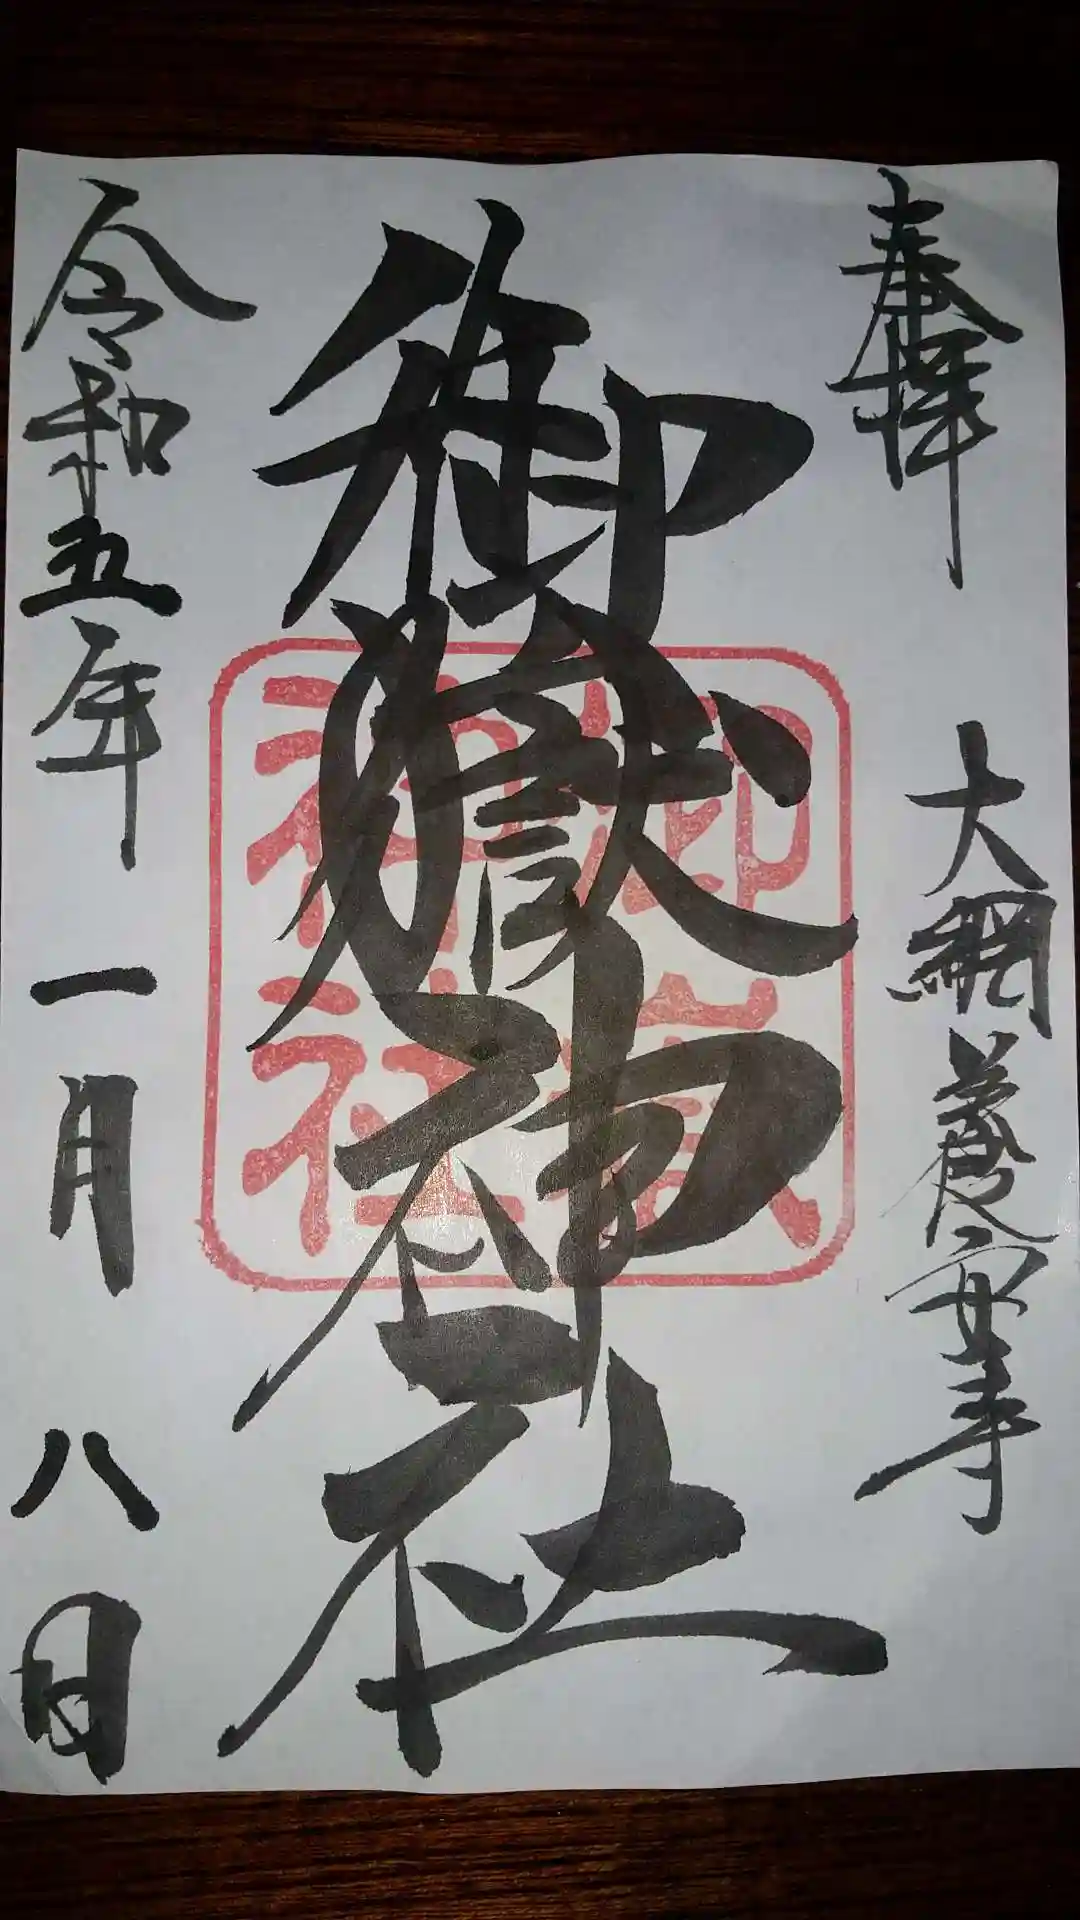 奉拝
大網養安寺
御嶽神社
令和五年一月八日
御嶽
神社